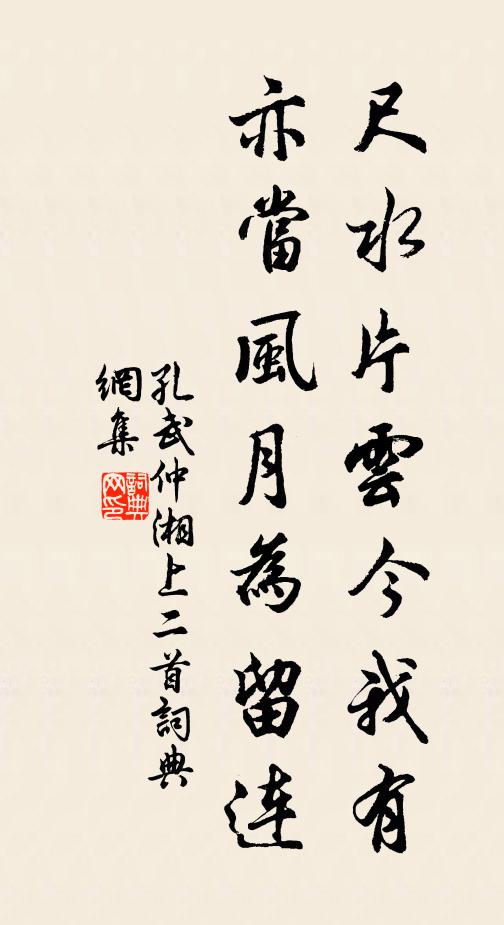 尺水片雲今我有
亦當風月為留連
孔武仲湘上二首詞典
網集
詞典
网印